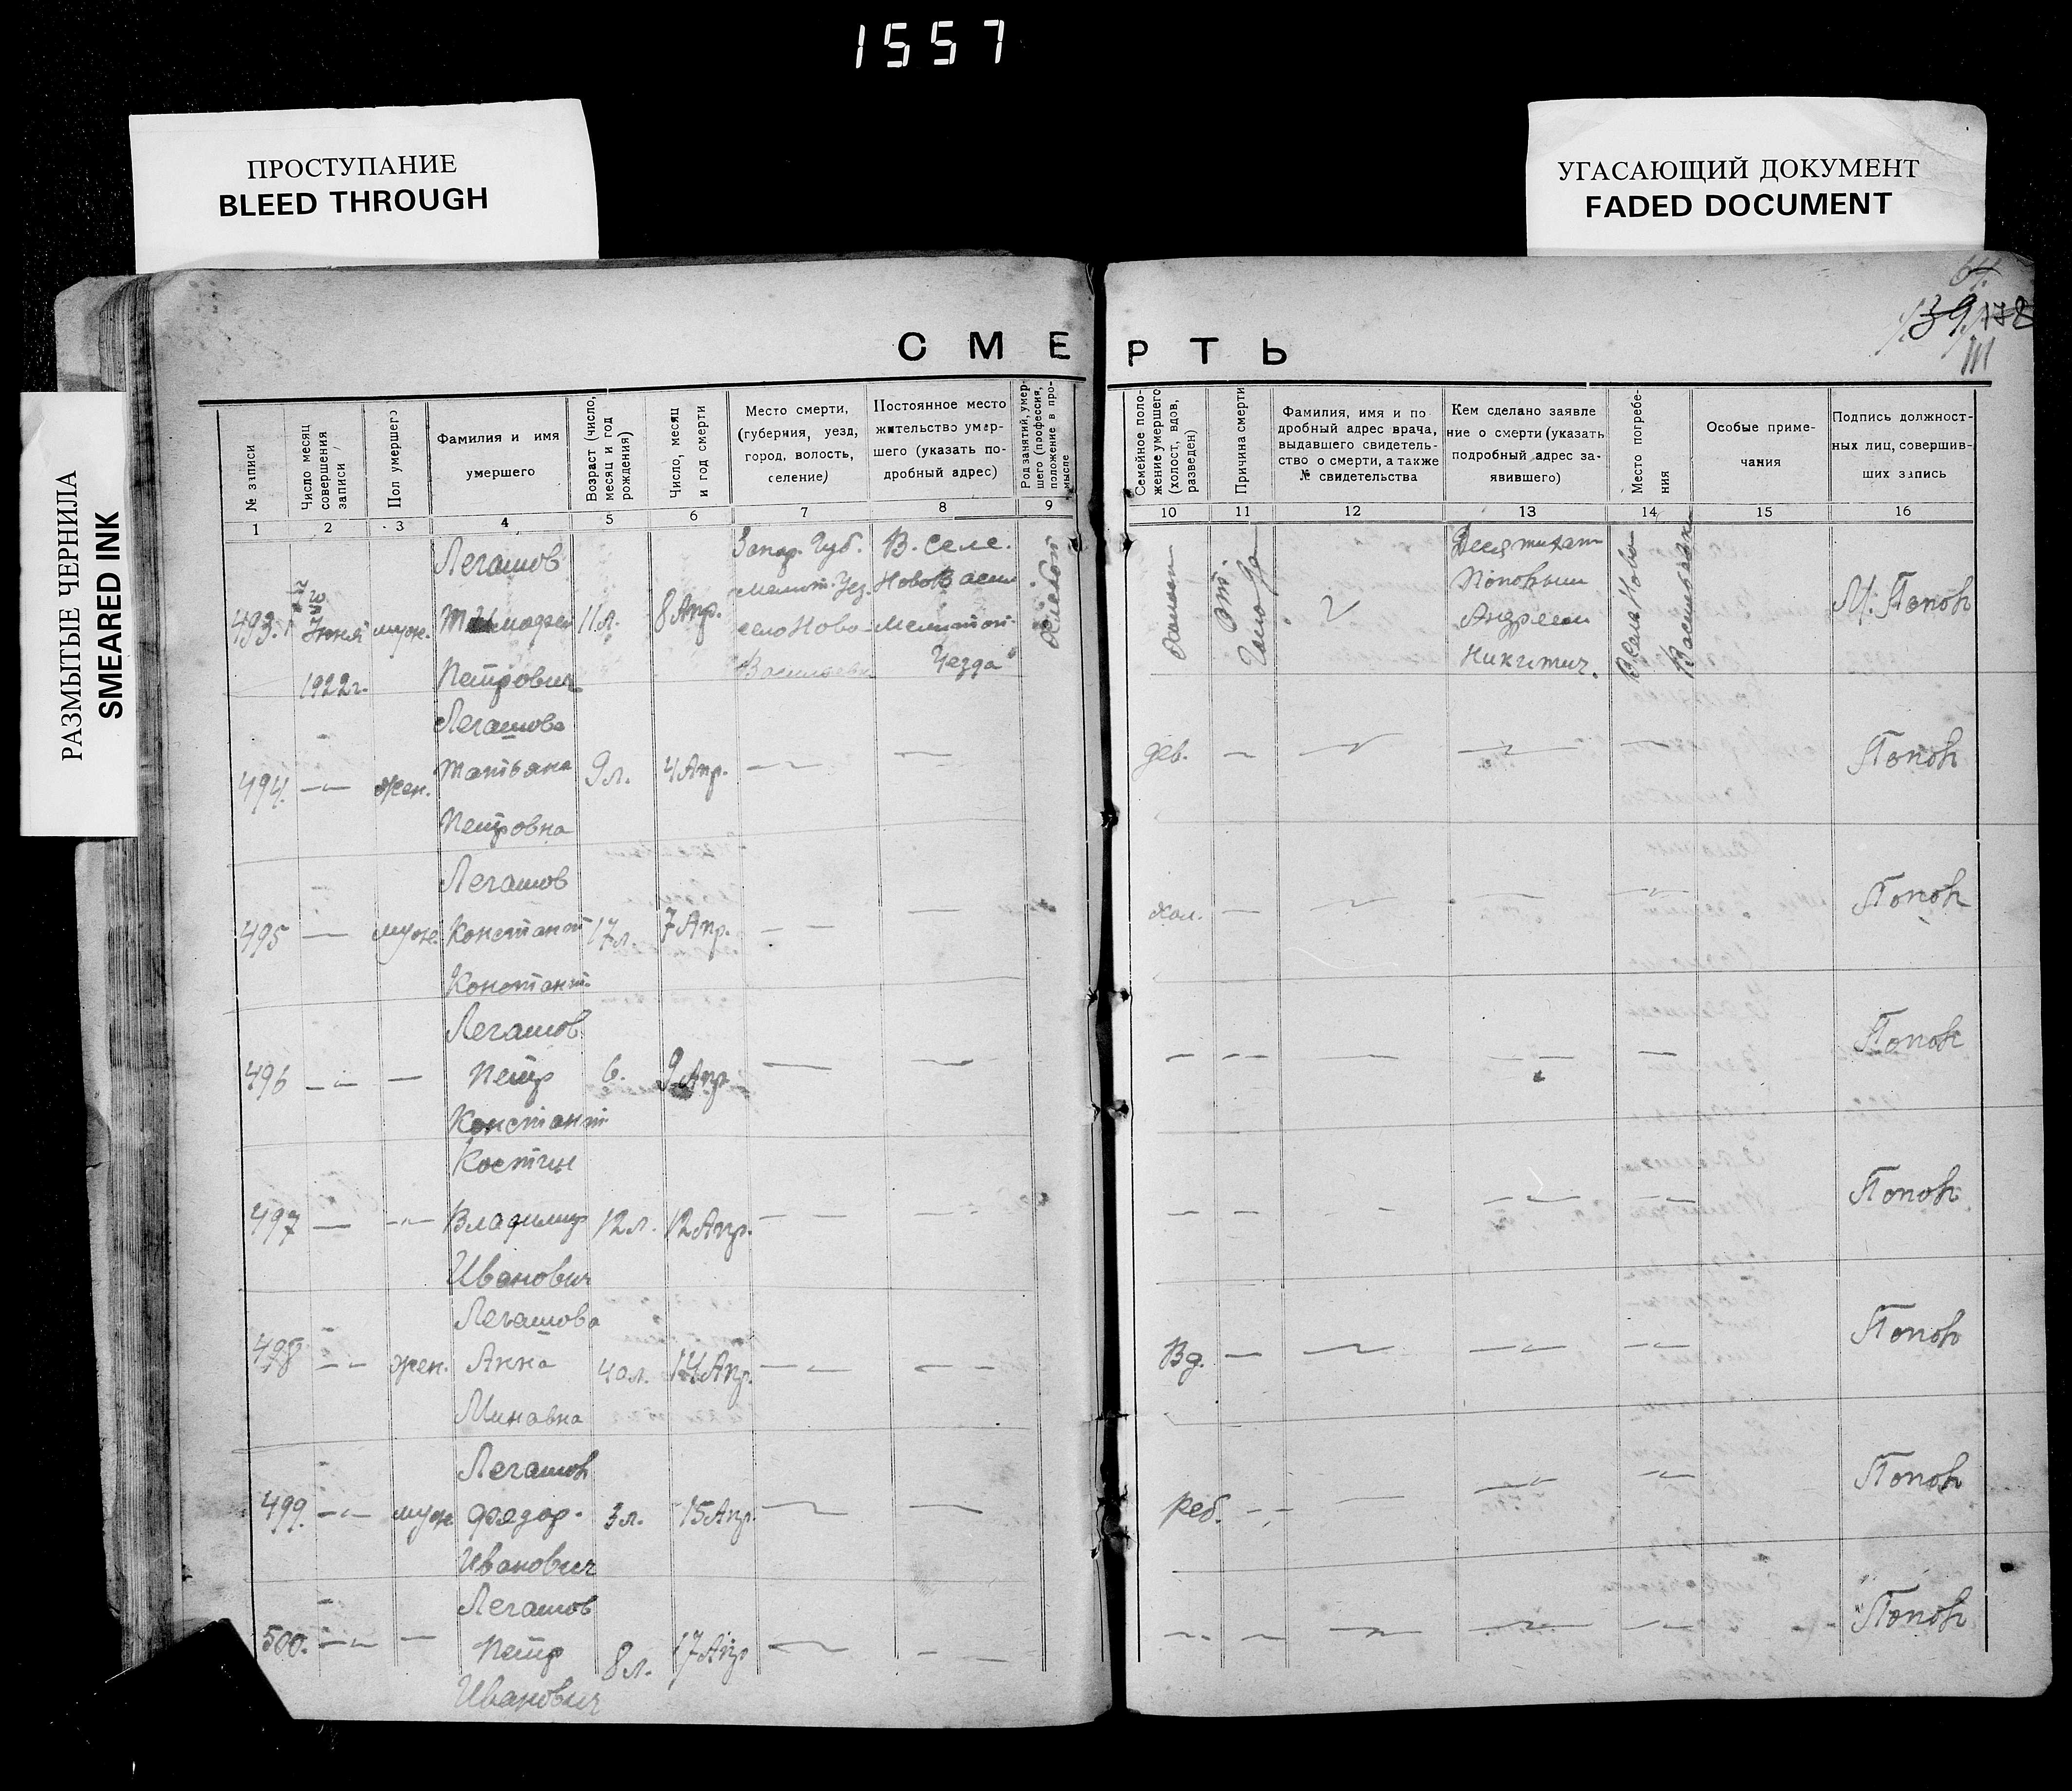 1557
ПРОСТУПАНИЕ
BLEED THROUGH
УГАСАЮЩИЙ ДОКУМЕНТ
FADED DOCUMENT
РАЗМЫТЫЕ ЧЕРНИЛА
SMEARED INK
139
111
СМЕРТЬ
№ записи
Число месяц
совершения
записи
Пол умершего
Фамилия и имя
умершего
Возраст (число,
месяц и год
рождения)
Число, месяц
и год смерти
Место смерти,
(губерния, уезд,
город, волость,
селение)
Постоянное место
жительство умер-
шего (указать по-
дробный адрес)
Род занятий, умер-
шего (профессия,
положение в про-
мысле
Семейное поло-
жение умершего
(холост, вдов,
разведен)
Причина смерти
Фамилия, имя и по
дробный адрес врача,
выдавшего свидетель-
ство о смерти, а также
№ свидетельства
Кем сделано заявле
ние о смерти (указать
подробный адрес за-
явившего)
Место погребе-
ния
Особые приме-
чания
Подпись должност-
ных лиц, совершив-
ших запись
1 2 3 4 5 6 7 8 9 10 11 12 13 14 15 16
493.
Июня
1922г.
муж.
Легашов
Петрович
11л.
8 Апр.
Запор. Губ.
Мелит. Уез.
село Ново-
Васильевка
В. селе.
НовоВасил
Мелитоп.
Уезда
Холост
От.
Голода
Десятихат
Попонын
Андреем
Никитич.
В села Ново
Васильевки
М. Попов
494.
жен.
Легашова
Татьяна
Петровна
9л.
4 Апр.
дев.
Попов
495
муж.
Легашов
Константн
Константн.
17л.
7 Апр.
хол.
Попов
496
Легашов
Петр
Константн
6.
9 Апр.
Попов
497
Костин
Владимир
Иванович
12л.
12 Апр.
Попов
498
жен.
Легашова
Анна
Минавна
40л.
14 Апр.
Вд.
Попов
499.
муж.
Легашов
Фядор.
Иванович
3л.
15 Апр.
реб.
Попов
500.
Легашов
Петр
Иванович
8л.
17 Апр
Попов